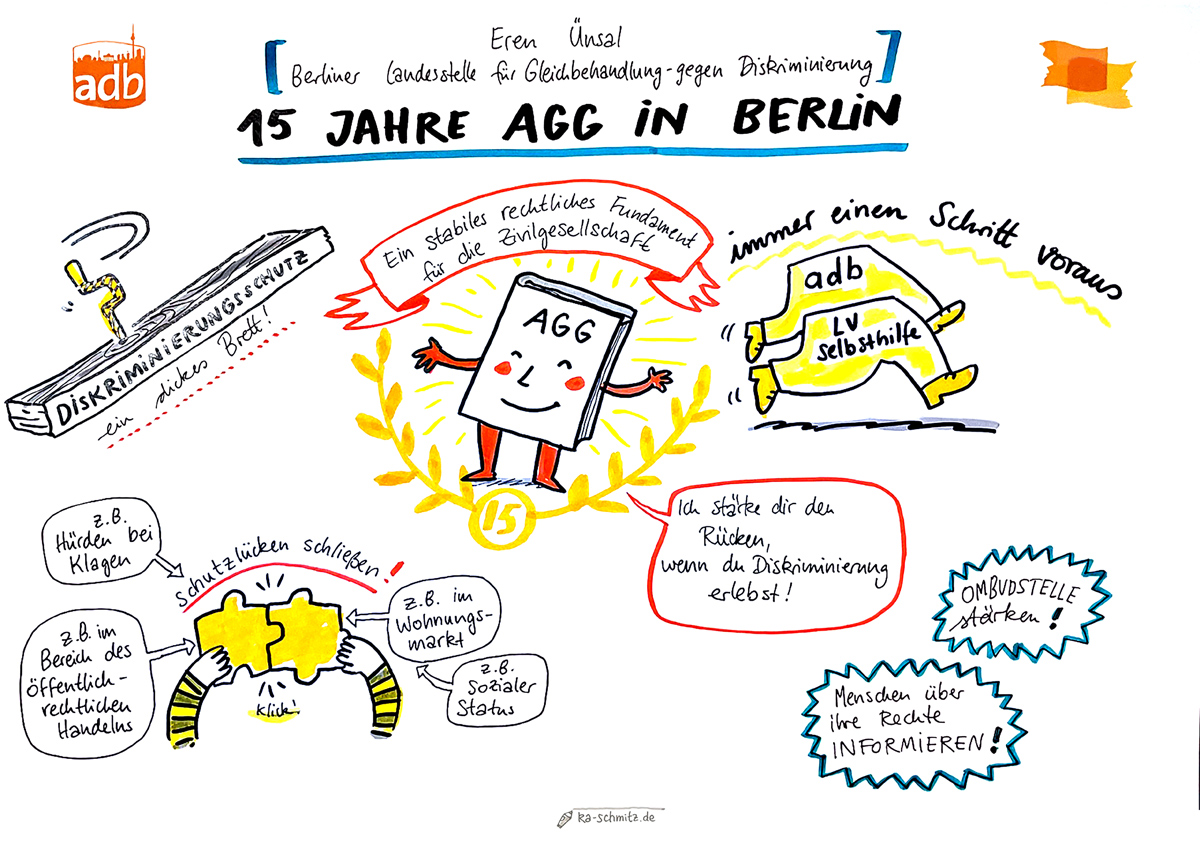 adb
Eren Ünsal
Berliner Landesstelle für Gleichbehandlung - gegen Diskriminierung
15 JAHRE AGG in BERLIN
DISKRIMINIERUNGSSCHUTZ
ein dickes Brett!
Ein stabiles rechtliches Fundament
für die Zivilgesellschaft
AGG
15
immer einen Schritt voraus
adb
LV
Selbsthilfe
Ich stärke dir den
Rücken,
wenn du Diskriminierung
erlebst!
z.B.
Hürden bei
Klagen
Schutzlücken schließen!
z.B. im
Bereich des
öffentlich-
rechtlichen
Handelns
z.B. im
Wohnungs-
markt
z.B.
Sozialer
Status
Klick!
OMBUDSTELLE
stärken!
Menschen über
ihre Rechte
INFORMIEREN!
ka-schmitz.de